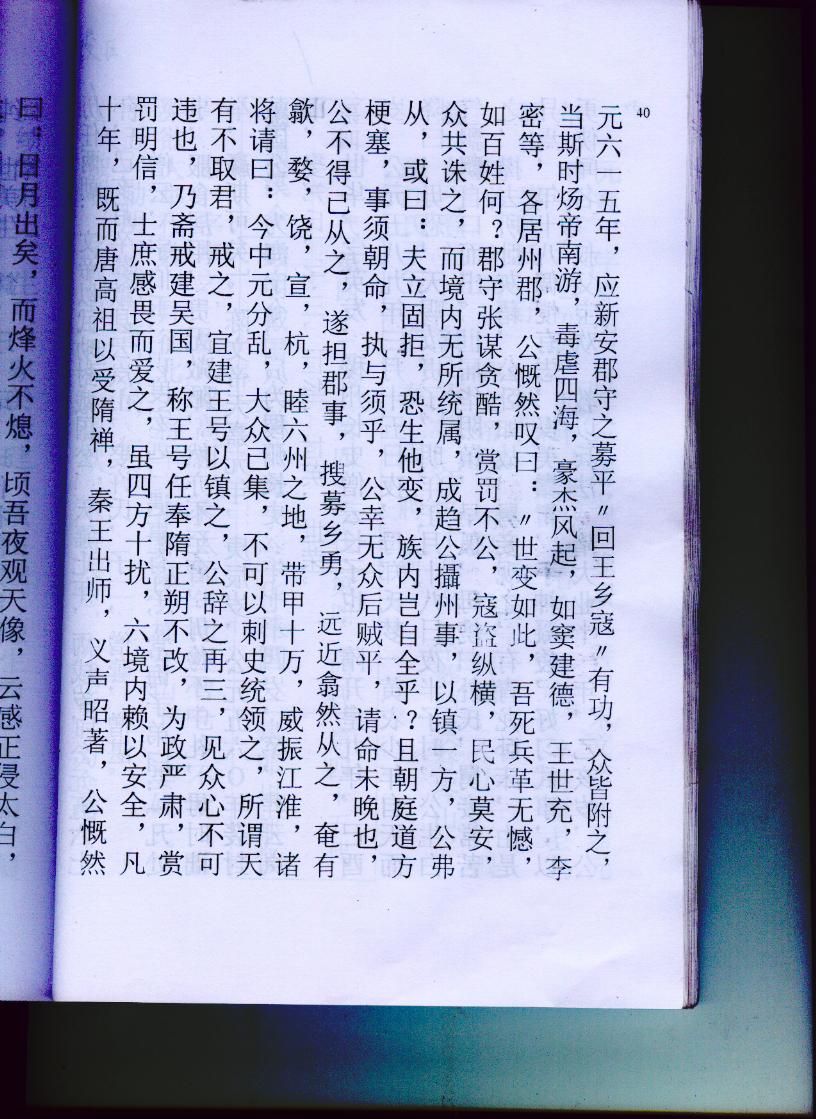 40
元六一五年，应新安郡守之募平〃回王乡寇〃有功，众皆附之，
当斯时炀帝南游，毒虐四海，豪杰风起，如窦建德，王世充，李
密等，各居州郡，公慨然叹曰：〃世变如此，吾死兵革无憾，
如百姓何？郡守张谋贪酷，赏罚不公，寇盗纵横，民心莫安，
众共诛之，而境内无所统属，成趋公攝州事，以镇一方，公弗
从，或曰：夫立固拒，恐生他变，族内岂自全乎？且朝庭道方
梗塞，事须朝命，执与须乎，公幸无众后贼平，请命未晚也，
公不得已从之，遂担郡事，搜募乡勇，远近翕然从之，奄有
歙，婺，饶，宣，杭，睦六州之地，带甲十万，威振江淮，诸
将请曰：今中元分乱，大众已集，不可以刺史统领之，所谓天
有不取君，戒之，宜建王号以镇之，公辞之再三，见众心不可
违也，乃斋戒建吴国，称王号任奉隋正朔不改，为政严肃，赏
罚明信，士庶感畏而爱之，虽四方十扰，六境内赖以安全，凡
十年，既而唐高祖以受隋禅，秦王出师，义声昭著，公慨然
曰：日月出矣，而烽火不熄，顷吾夜观天像，云感正侵太白，